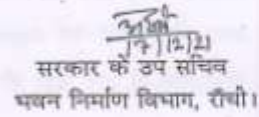 17/12/21
सरकार के उप सचिव
भवन निर्माण विभाग, राँची।